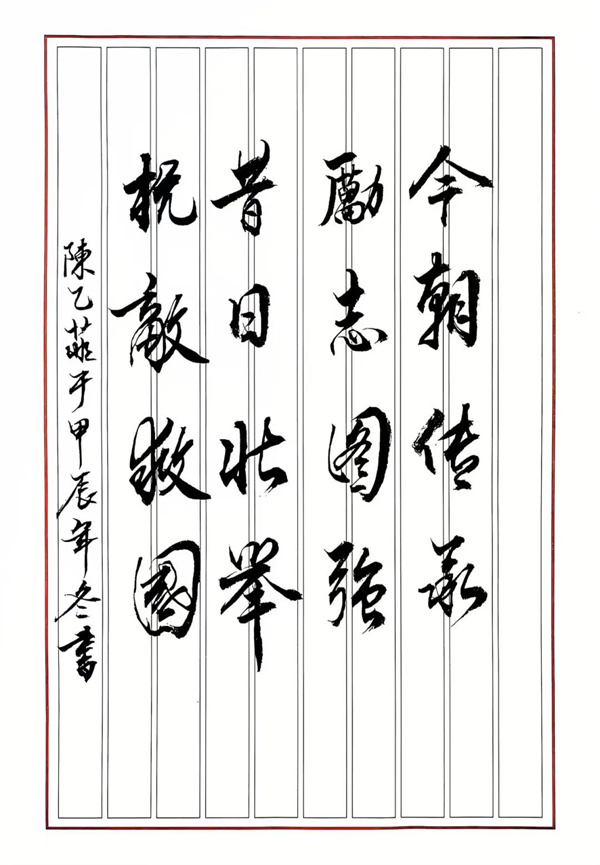 今朝传承
勵志图強
昔日壮举
抗敵救國
陳乙菲于甲辰年冬書